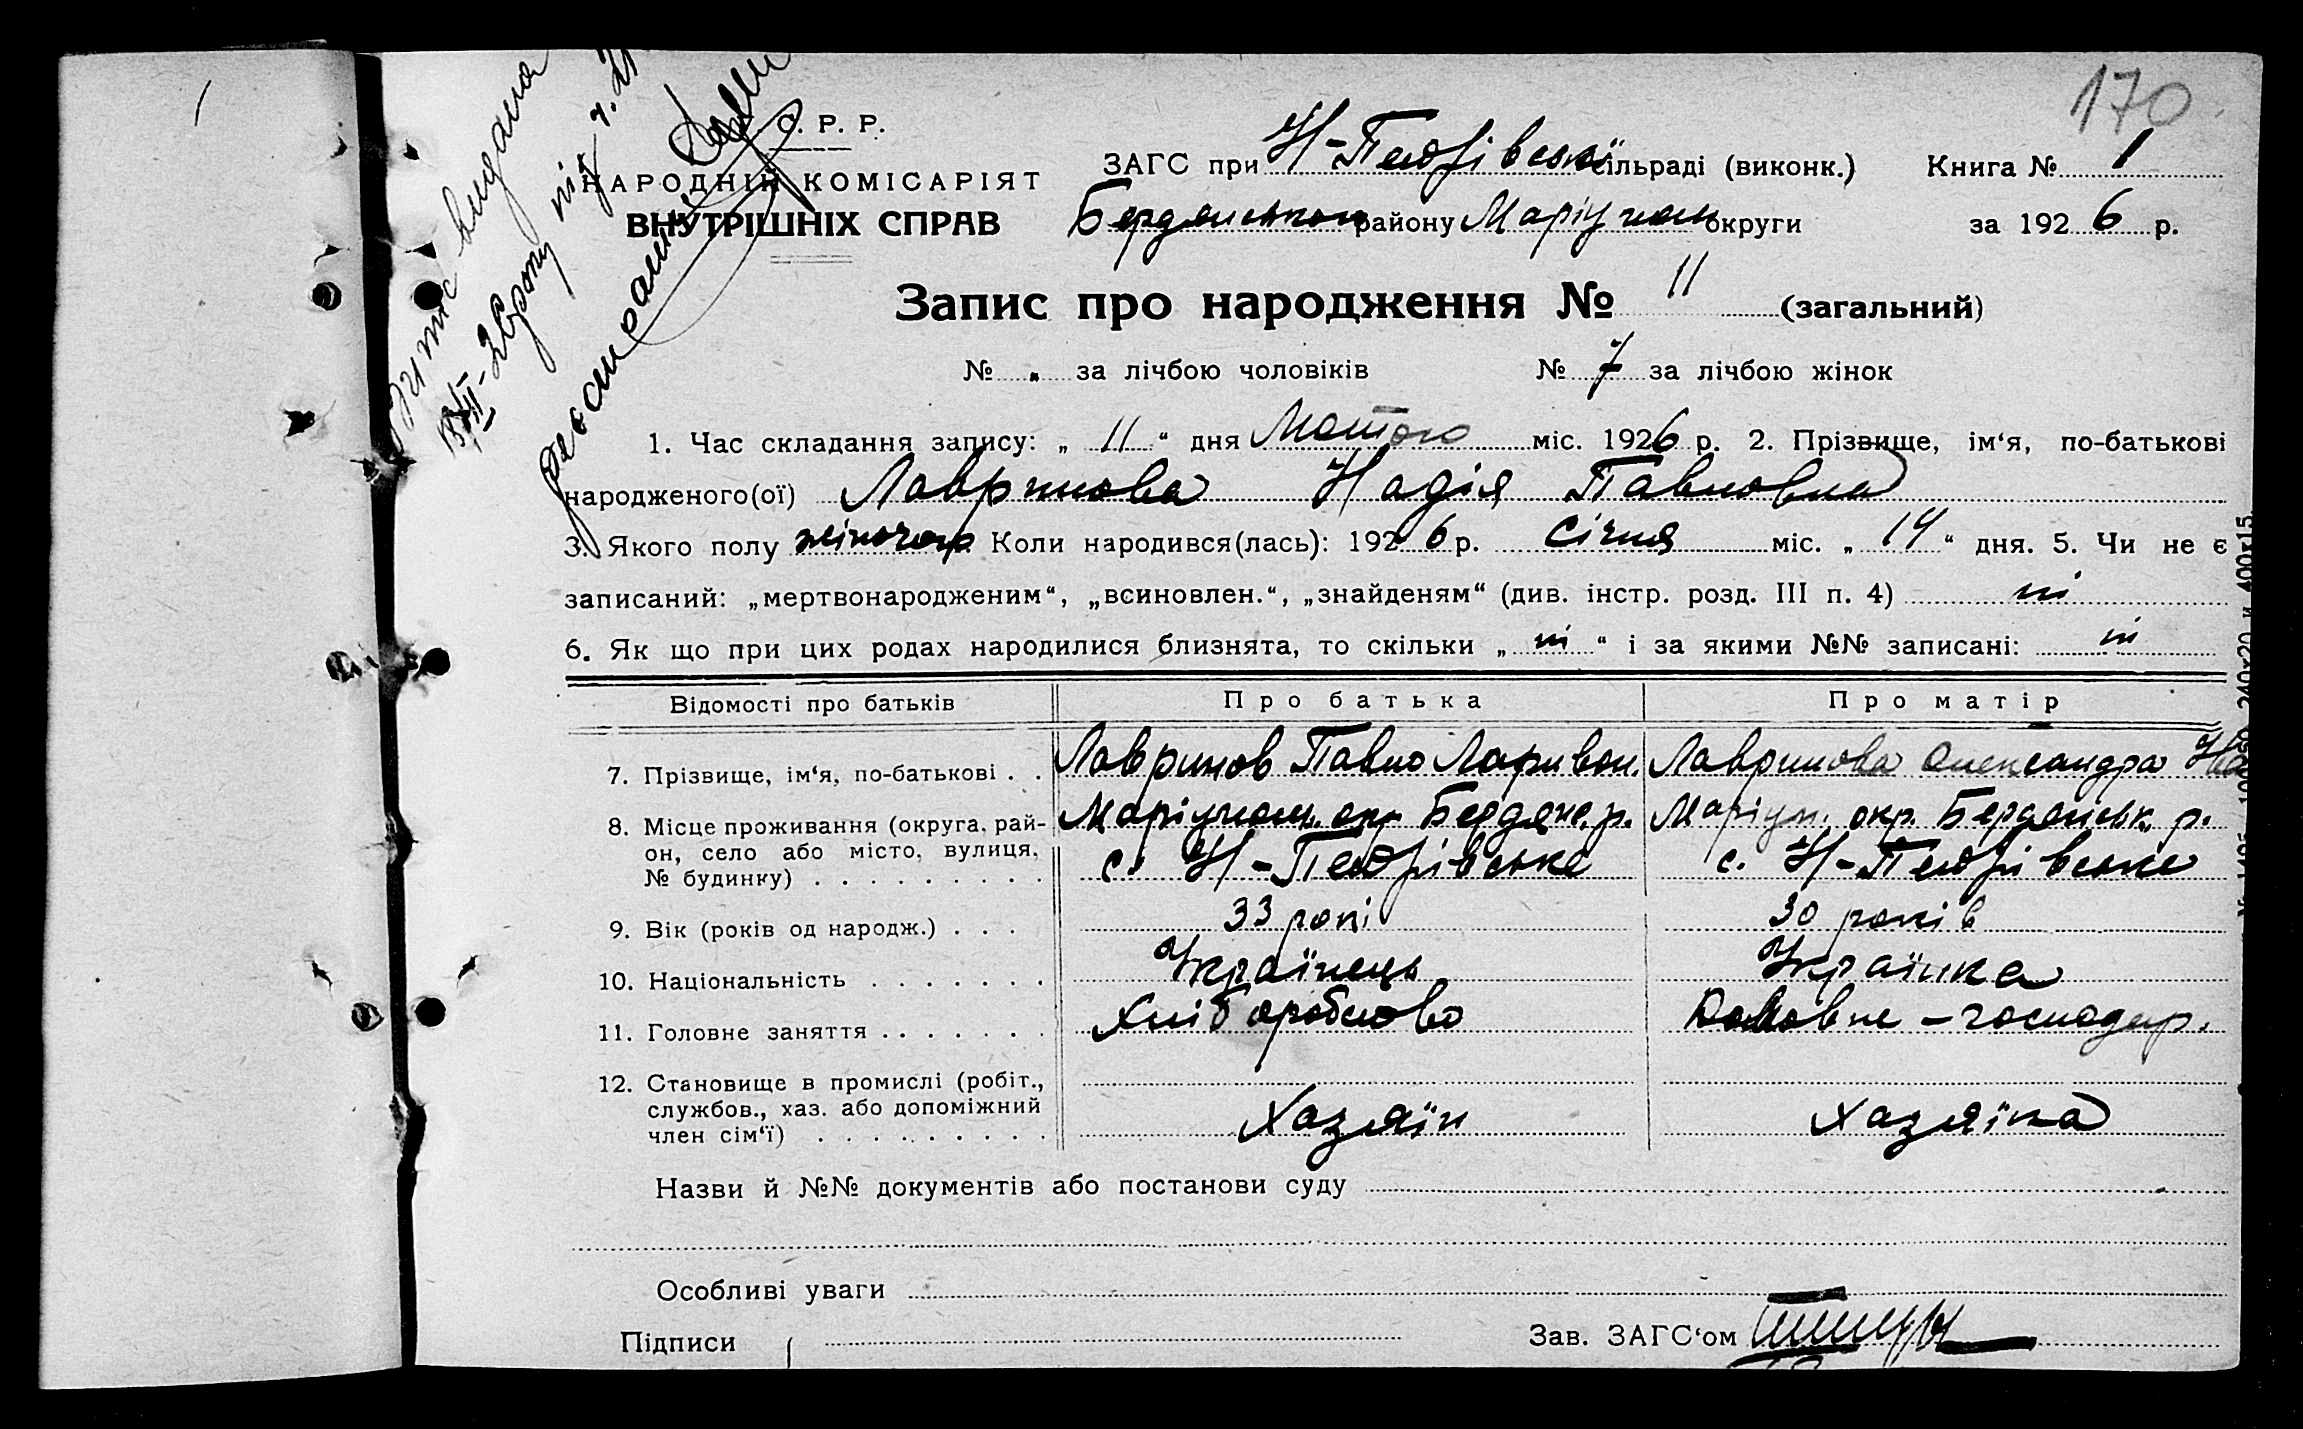 170
С. Р. Р.
НАРОДНІЙ КОМІСАРІЯТ
ВНУТРІШНІХ СПРАВ
ЗАГС при Н-Петрівській сільраді (виконк.) Книга № 1
Бердянського району Маріупол округи за 1926 р.
Запис про народження № 11 (загальний)
№ „ за лічбою чоловіків № 7 за лічбою жінок
1. Час складання запису: „ 11 “ дня Лютого міс. 1926 р. 2. Прізвище, ім‘я, по-батькові
народженого(ої) Лавринова Надія Павловна
3. Якого полу жіночого Коли народився(лась): 1926 р. Січня міс. „ 14 “ дня. 5. Чи не є
записаний: „мертвонародженим“, „всиновлен.“, „знайденям“ (див. інстр. розд. III п. 4) ні
6. Як що при цих родах народилися близнята, то скільки „ ні “ і за якими №№ записані: ні
Відомості про батьків Про батька Про матір
7. Прізвище, ім‘я, по-батькові . . Лавринов Павло Ларивон. Лавринова Олександра
8. Місце проживання (округа, рай-
он, село або місто, вулиця,
№ будинку) . . . . . . . . .
Маріупол. окр Бердянс. р. Маріуп. окр. Бердянськ. р.
с. Н-Петрівське с. Н-Петрівське
9. Вік (років од народж.) . . . 33 рокі 30 років
10. Національність . . . . . . . Українець Українка
11. Головне заняття . . . . . . . Хліборобство Домовне - господар.
12. Становище в промислі (робіт.,
службов., хаз. або допоміжний
член сім‘ї) . . . . . . . . . Хазяїн Хазяїка
Назви й №№ документів або постанови суду
Особливі уваги
Підписи Зав. ЗАГС‘ом